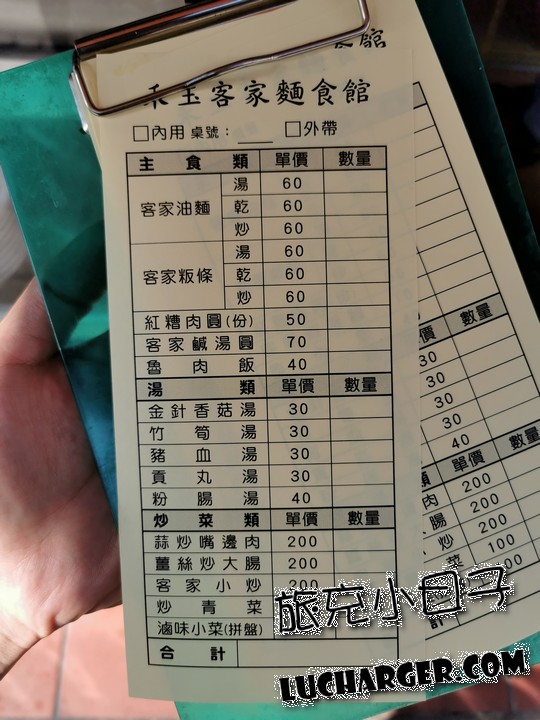 食館
禾玉客家麵食館
□內用 桌號：＿＿ □外帶
主食類 單價 數量
客家油麵 湯 60
乾 60
炒 60
客家粄條 湯 60
乾 60
炒 60
紅糟肉圓(份) 50
客家鹹湯圓 70
魯肉飯 40
湯類 單價 數量
金針香菇湯 30
竹筍湯 30
豬血湯 30
貢丸湯 30
粉腸湯 40
炒菜類 單價 數量
蒜炒嘴邊肉 200
薑絲炒大腸 200
客家小炒 300
炒青菜
滷味小菜(拼盤)
合計
價 數量
30
30
30
30
40
單價 數量
肉 200
腸 200
炒 200
菜 100
00
計
旅充小日子
LUCHARGER.COM